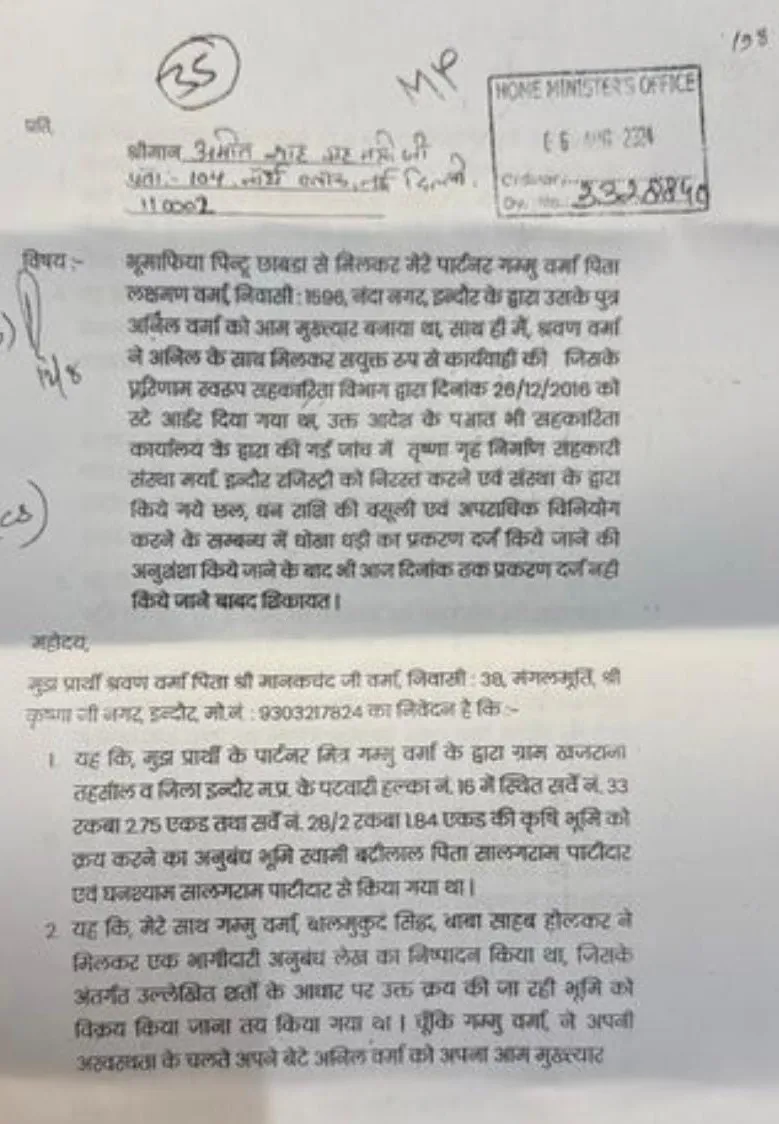 35
MP
198
HOME MINISTER'S OFFICE
06 AUG 2024
Dy. No. 3328840
प्रति,
श्रीमान अमित शाह गृह मंत्री जी
पता:- 104, नॉर्थ ब्लाक, नई दिल्ली.
110002
विषय :- भूमाफिया पिन्टू छाबडा से मिलकर मेरे पार्टनर गम्मु वर्मा पिता
लक्षमण वर्मा, निवासी : 1596, नंदा नगर, इन्दौर के द्वारा उसके पुत्र
अनिल वर्मा को आम मुख्त्यार बनाया था, साथ ही मैं, श्रवण वर्मा
ने अनिल के साथ मिलकर सयुक्त रुप से कार्यवाही की जिसके
परिणाम स्वरुप सहकारिता विभाग द्वारा दिनांक 26/12/2016 को
स्टे आर्डर दिया गया था, उक्त आदेश के पश्चात भी सहकारिता
कार्यालय के द्वारा की गई जांच में तृष्णा गृह निर्माण सहकारी
संस्था मर्या. इन्दौर रजिस्ट्री को निरस्त करने एवं संस्था के द्वारा
किये गये छल, धन राशि की वसूली एवं अपराधिक विनियोग
करने के सम्बन्ध में धोखा धड़ी का प्रकरण दर्ज किये जाने की
अनुशंशा किये जाने के बाद भी आज दिनांक तक प्रकरण दर्ज नही
किये जाने बाबद शिकायत।
महोदय,
मुझ प्रार्थी श्रवण वर्मा पिता श्री मानकचंद जी वर्मा, निवासी : 38, मंगलमूर्ति, श्री
कृष्णा जी नगर, इन्दौर, मो.नं : 9303217824 का निवेदन है कि :-
1. यह कि, मुझ प्रार्थी के पार्टनर मित्र गम्मु वर्मा के द्वारा ग्राम खजराना
तहसील व जिला इन्दौर म.प्र. के पटवारी हल्का नं. 16 में स्थित सर्वे नं. 33
रकबा 2.75 एकड तथा सर्वे नं. 28/2 रकबा 1.84 एकड की कृषि भूमि को
क्रय करने का अनुबंध भूमि स्वामी बद्रीलाल पिता सालगराम पाटीदार
एवं घनश्याम सालगराम पाटीदार से किया गया था।
2. यह कि, मेरे साथ गम्मु वर्मा, बालमुकुंद सिद्ध, बाबा साहब होलकर ने
मिलकर एक भागीदारी अनुबंध लेख का निष्पादन किया था, जिसके
अंतर्गत उल्लेखित शर्तो के आधार पर उक्त क्रय की जा रही भूमि को
विक्रय किया जाना तय किया गया था। चूँकि गम्मु वर्मा, ने अपनी
अस्वस्थता के चलते अपने बेटे अनिल वर्मा को अपना आम मुख्त्यार